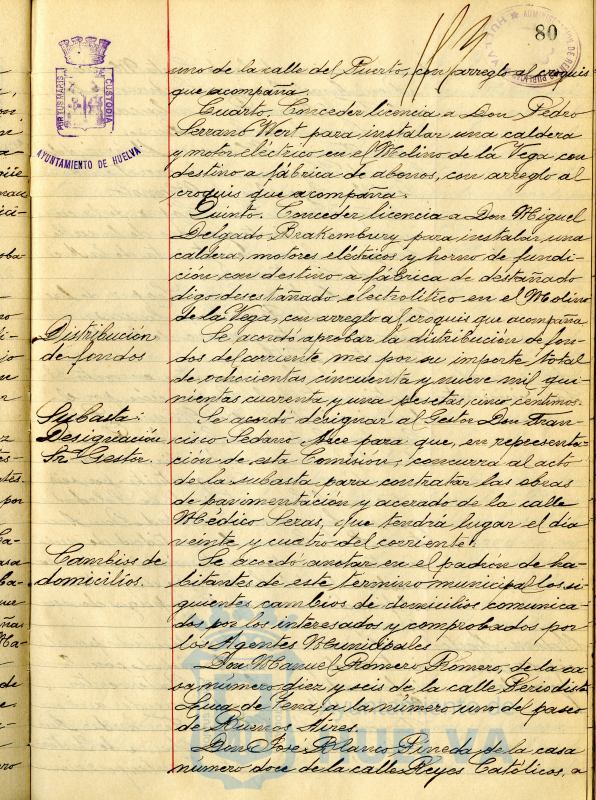 80
PORTUS MARIS
CUSTODIA
AYUNTAMIENTO DE HUELVA
uno de la calle del Puerto, con arreglo al croquis
que acompaña.
Cuarto. Conceder licencia a Don Pedro
Serrano Wert para instalar una caldera
y motor eléctrico en el Molino de la Vega con
destino a fábrica de abonos, con arreglo al
croquis que acompaña.
Quinto. Conceder licencia a Don Miguel
Delgado Brakembury para instalar una
caldera, motores eléctricos y horno de fundi-
ción con destino a fábrica de destañado
digo desestañado electrolítico en el Molino
de la Vega, con arreglo al croquis que acompaña
Distribución
de fondos
Se acordó aprobar la distribución de fon-
dos del corriente mes por su importe total
de ochocientas cincuenta y nueve mil qui-
nientas cuarenta y una pesetas, cinco céntimos.
Subasta:
Designación
Sr. Gestor.
Se acordó designar al Gestor Don Fran-
cisco Sedano para que, en representa-
ción de esta Comisión, concurra al acto
de la subasta para contratar las obras
de pavimentación y acerado de la calle
Médico Seras, que tendrá lugar el dia
veinte y cuatro del corriente.
Cambios de
domicilios.
Se acordó anotar en el padrón de ha-
bitantes de este termino municipal los si-
guientes cambios de domicilios comunica-
dos por los interesados y comprobados por
los Agentes Municipales
Don Manuel Romero Romero, de la ca-
sa número diez y seis de la calle Periodista
Luca de Tena, a la número uno del paseo
de Buenos Aires.
Don José Blanco Pineda de la casa
número doce de la calle Reyes Católicos, a
HUELVA